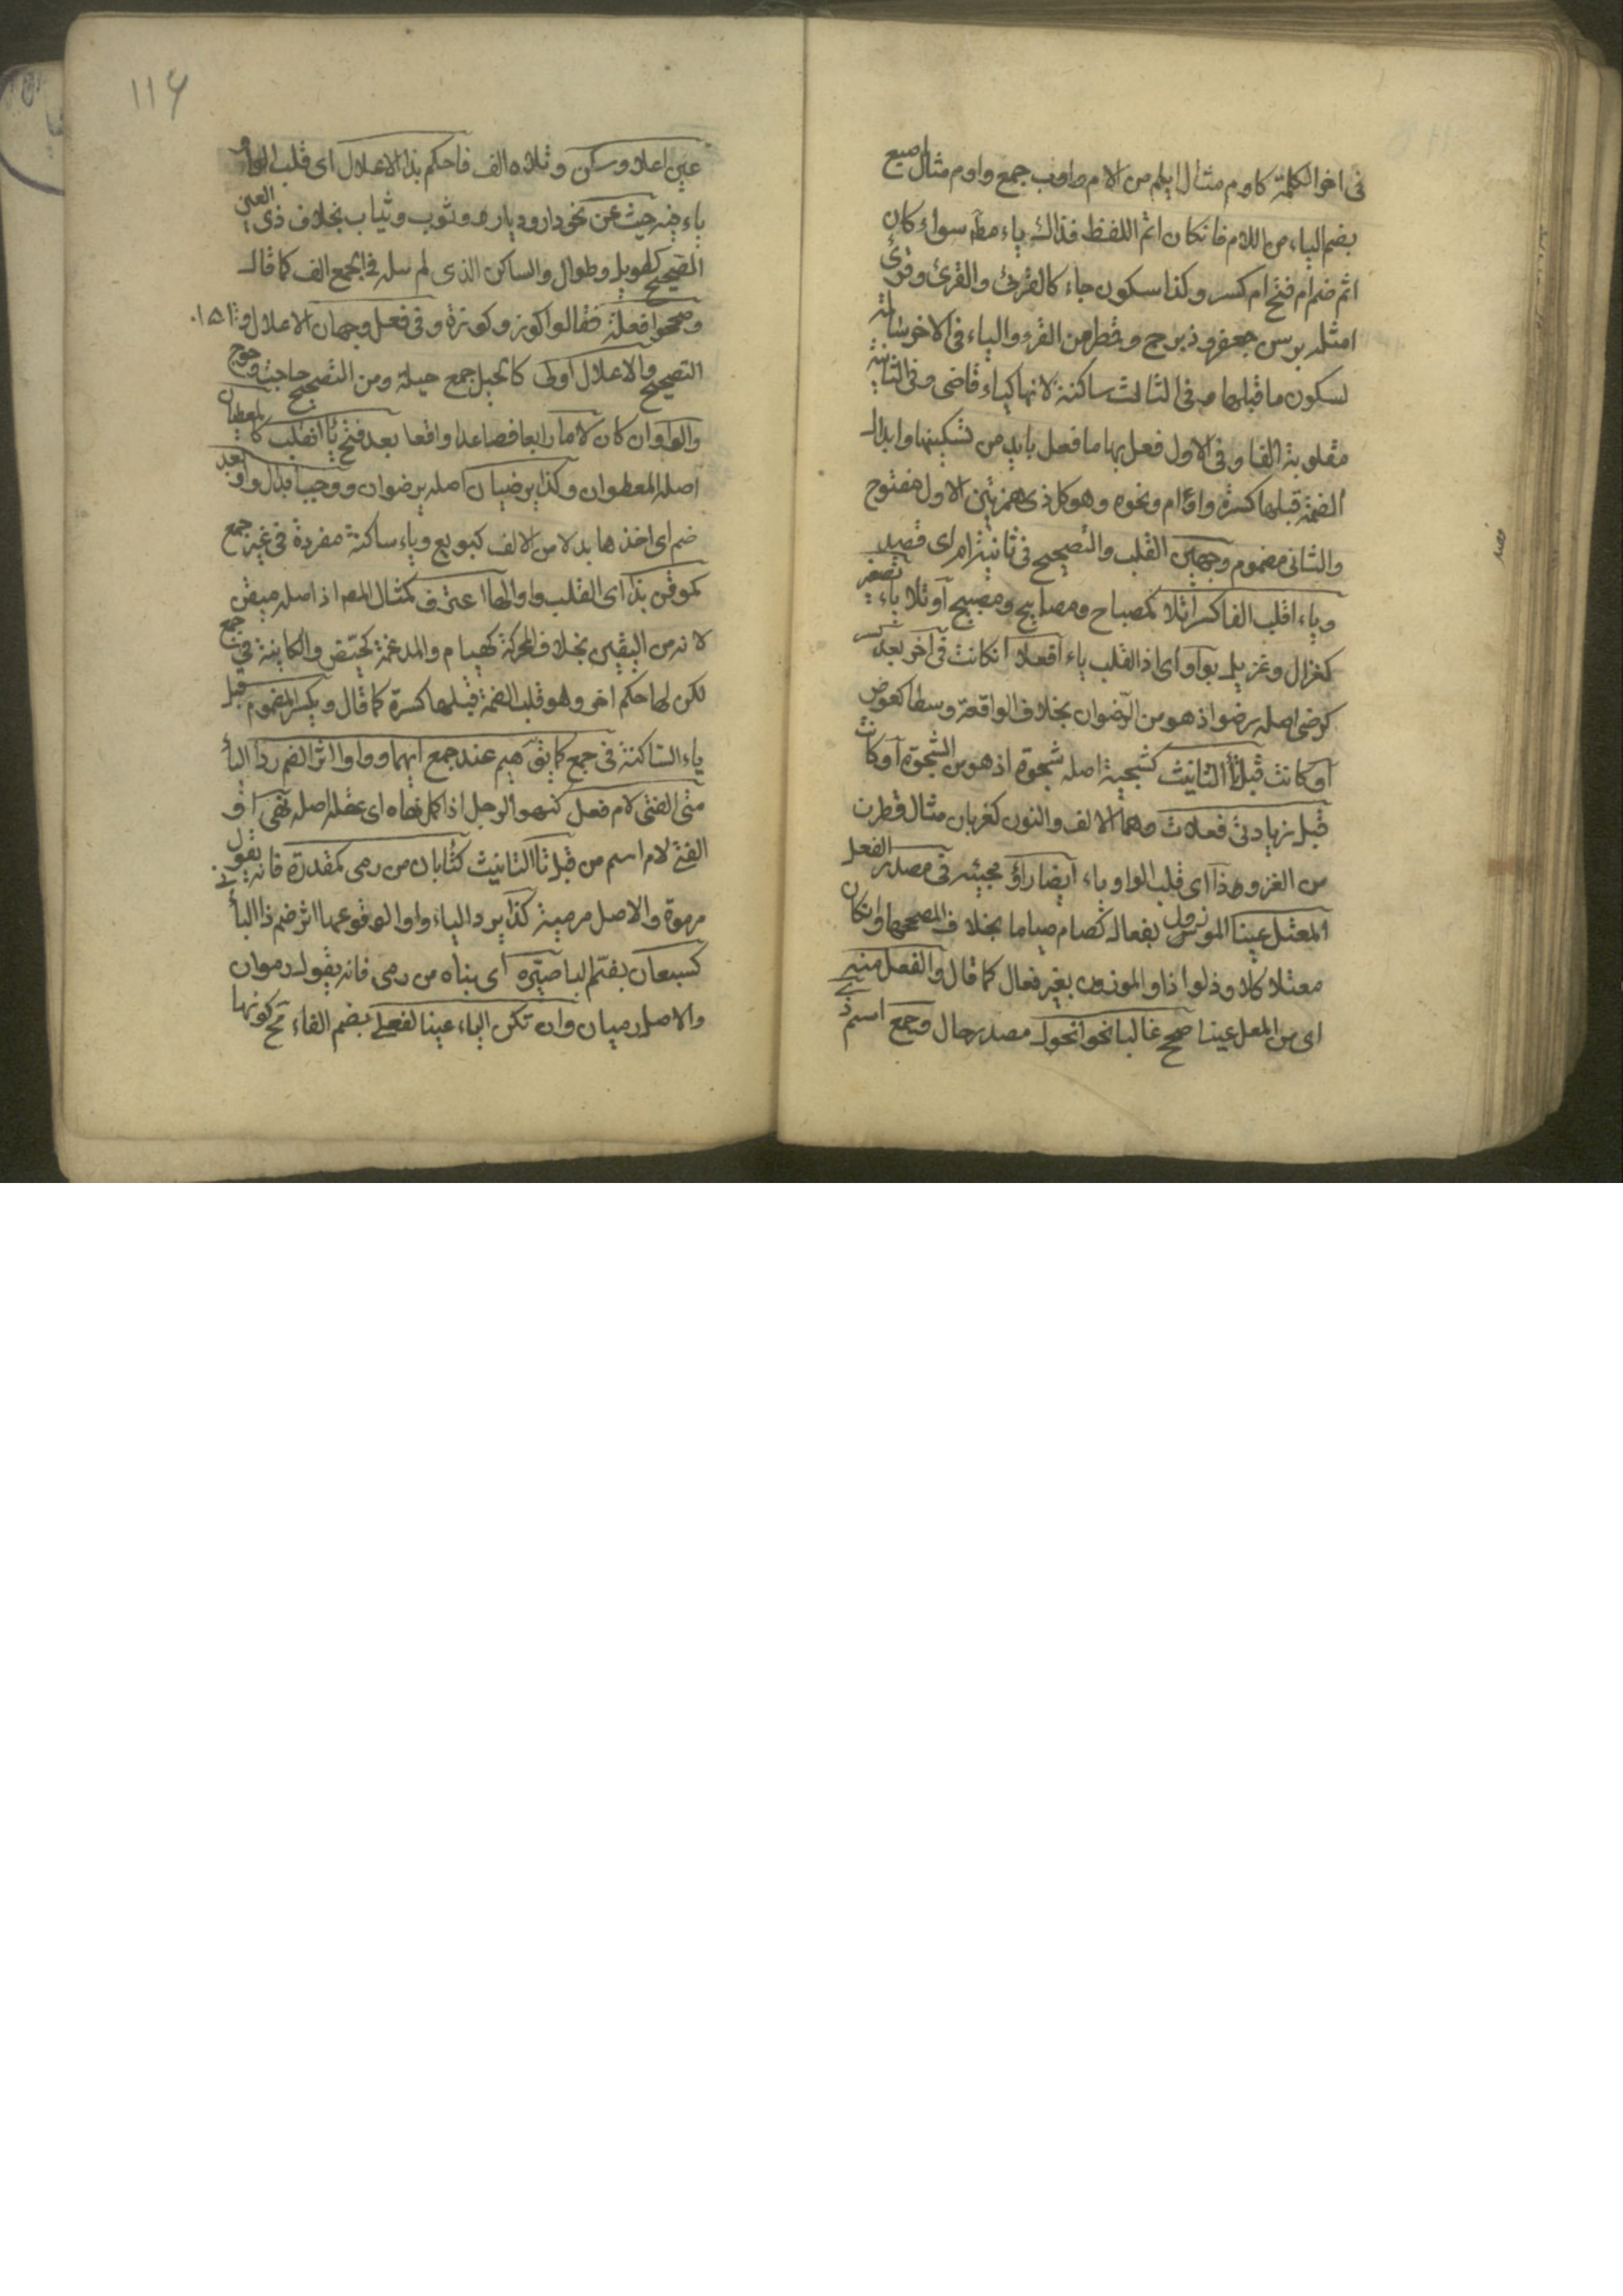 فى اخر الكلمة كاوم مثال ايلم من الام واوب جمع واوم مثال اصبع
بضم الباء من اللام فانكان اتم اللفظ فذاك ياء مطلقا سواء كان
اثر ضم ام فتح ام كسر وكذا سكون جاء كالقرئ والقرئ وقرئ
امثله برس جعفر وزبرج وقمطر من القرء والياء فى الاخر
لسكون ما قبلها وفى الثالث ساكنة لانها كياء قاضى وفى الثانية
مقلوبة الفا وفى الاول فعل بها ما فعل بايد من تسكينها وابدال
الضمة قبلها كسرة واؤم ونحوه وهو كل ذى همزتين الاول مفتوح
والثانى مضموم وجهين القلب والتصحيح فى ثانيه ام اى قصد
وياء اقلب الفا كسرا تلا كمصباح ومصابيح ومصيبيح او تلا ياء تصغير
كغزال وغزيل بواو اى اذا القلب ياء افعلا انكانت فى آخر بعد كسر
كرضى اصله رضو اذ هو من الرضوان بخلاف الواقعة وسطا كعوض
او كانت قبل تا التانيث كشجية اصله شجوة اذ هو من الشجو او كانت
قبل زيادتى فعلان وهما الالف والنون كغزيان مثال قطران
من الغزو وهذا اى قلب الواو ياء ايضا راؤ مجيئه فى مصدر الفعل
المعتل عينا الموزون بفعال كصام صياما بخلاف المصححها وانكان
معتلا كلاوذ لواذا والموزون بغير فعال كما قال والفعل منه
اى من المعل عينا صحح غالبا نحو الحول مصدر حال وجمع اسم ذى
116
عين اعل او سكن وتلاه الف فاحكم بذا الاعلال اى قلب الواو
ياء فيه حيث عن نحو دار وديار وثوب وثياب بخلاف ذى العين
الصحيح كطويل وطوال والساكن الذى لم يتله فى الجمع الف كما قال
وصححوا فعلة فقالوا كوز وكوزة وفى فعل وجهان الاعلال و
التصحيح والاعلال اولى كالحيل جمع حيلة ومن التصحيح حاجة وحوج
والواو ان كان لاما رابعا فصاعدا واقعا بعد فتح يا انقلب كالمعطيان
اصله المعطوان وكذا يرضيان اصله يرضوان ووجب ابدال واو بعد
ضم اى اخذها بدلا من الالف كبويع وياء ساكنة مفردة فى غير جمع
كموقن بذا اى القلب واوا لها اعترف كمثال المص اذ اصله ميقن
لانه من اليقين بخلاف المحركة كهيام والمدغمة كحيض والكاينة فى جمع
لكن لها حكم اخر وهو قلب الضمة قبلها كسرة كما قال ويكسر المضموم قبل
ياء الساكنة فى جمع كما يق هيم عند جمع اهيما وواوا اثر الضم رد اليا
متى الفى لام فعل كنهو الرجل اذا كمل نهاه اى عقله اصله نهى او
الفى لام اسم من قبل تا التانيث كتا بان من رمى كمقدرة فانه يقول
مرموة والاصل مرمية كذا يرد الياء واوا لوقوعها اثر ضم ذا اليا
كسبعان بضم البا صيره اى بناه من رمى فانه يقول رموان
والاصل رميان وان تكن الياء عينا لفعلى بضم الفاء مع كونها